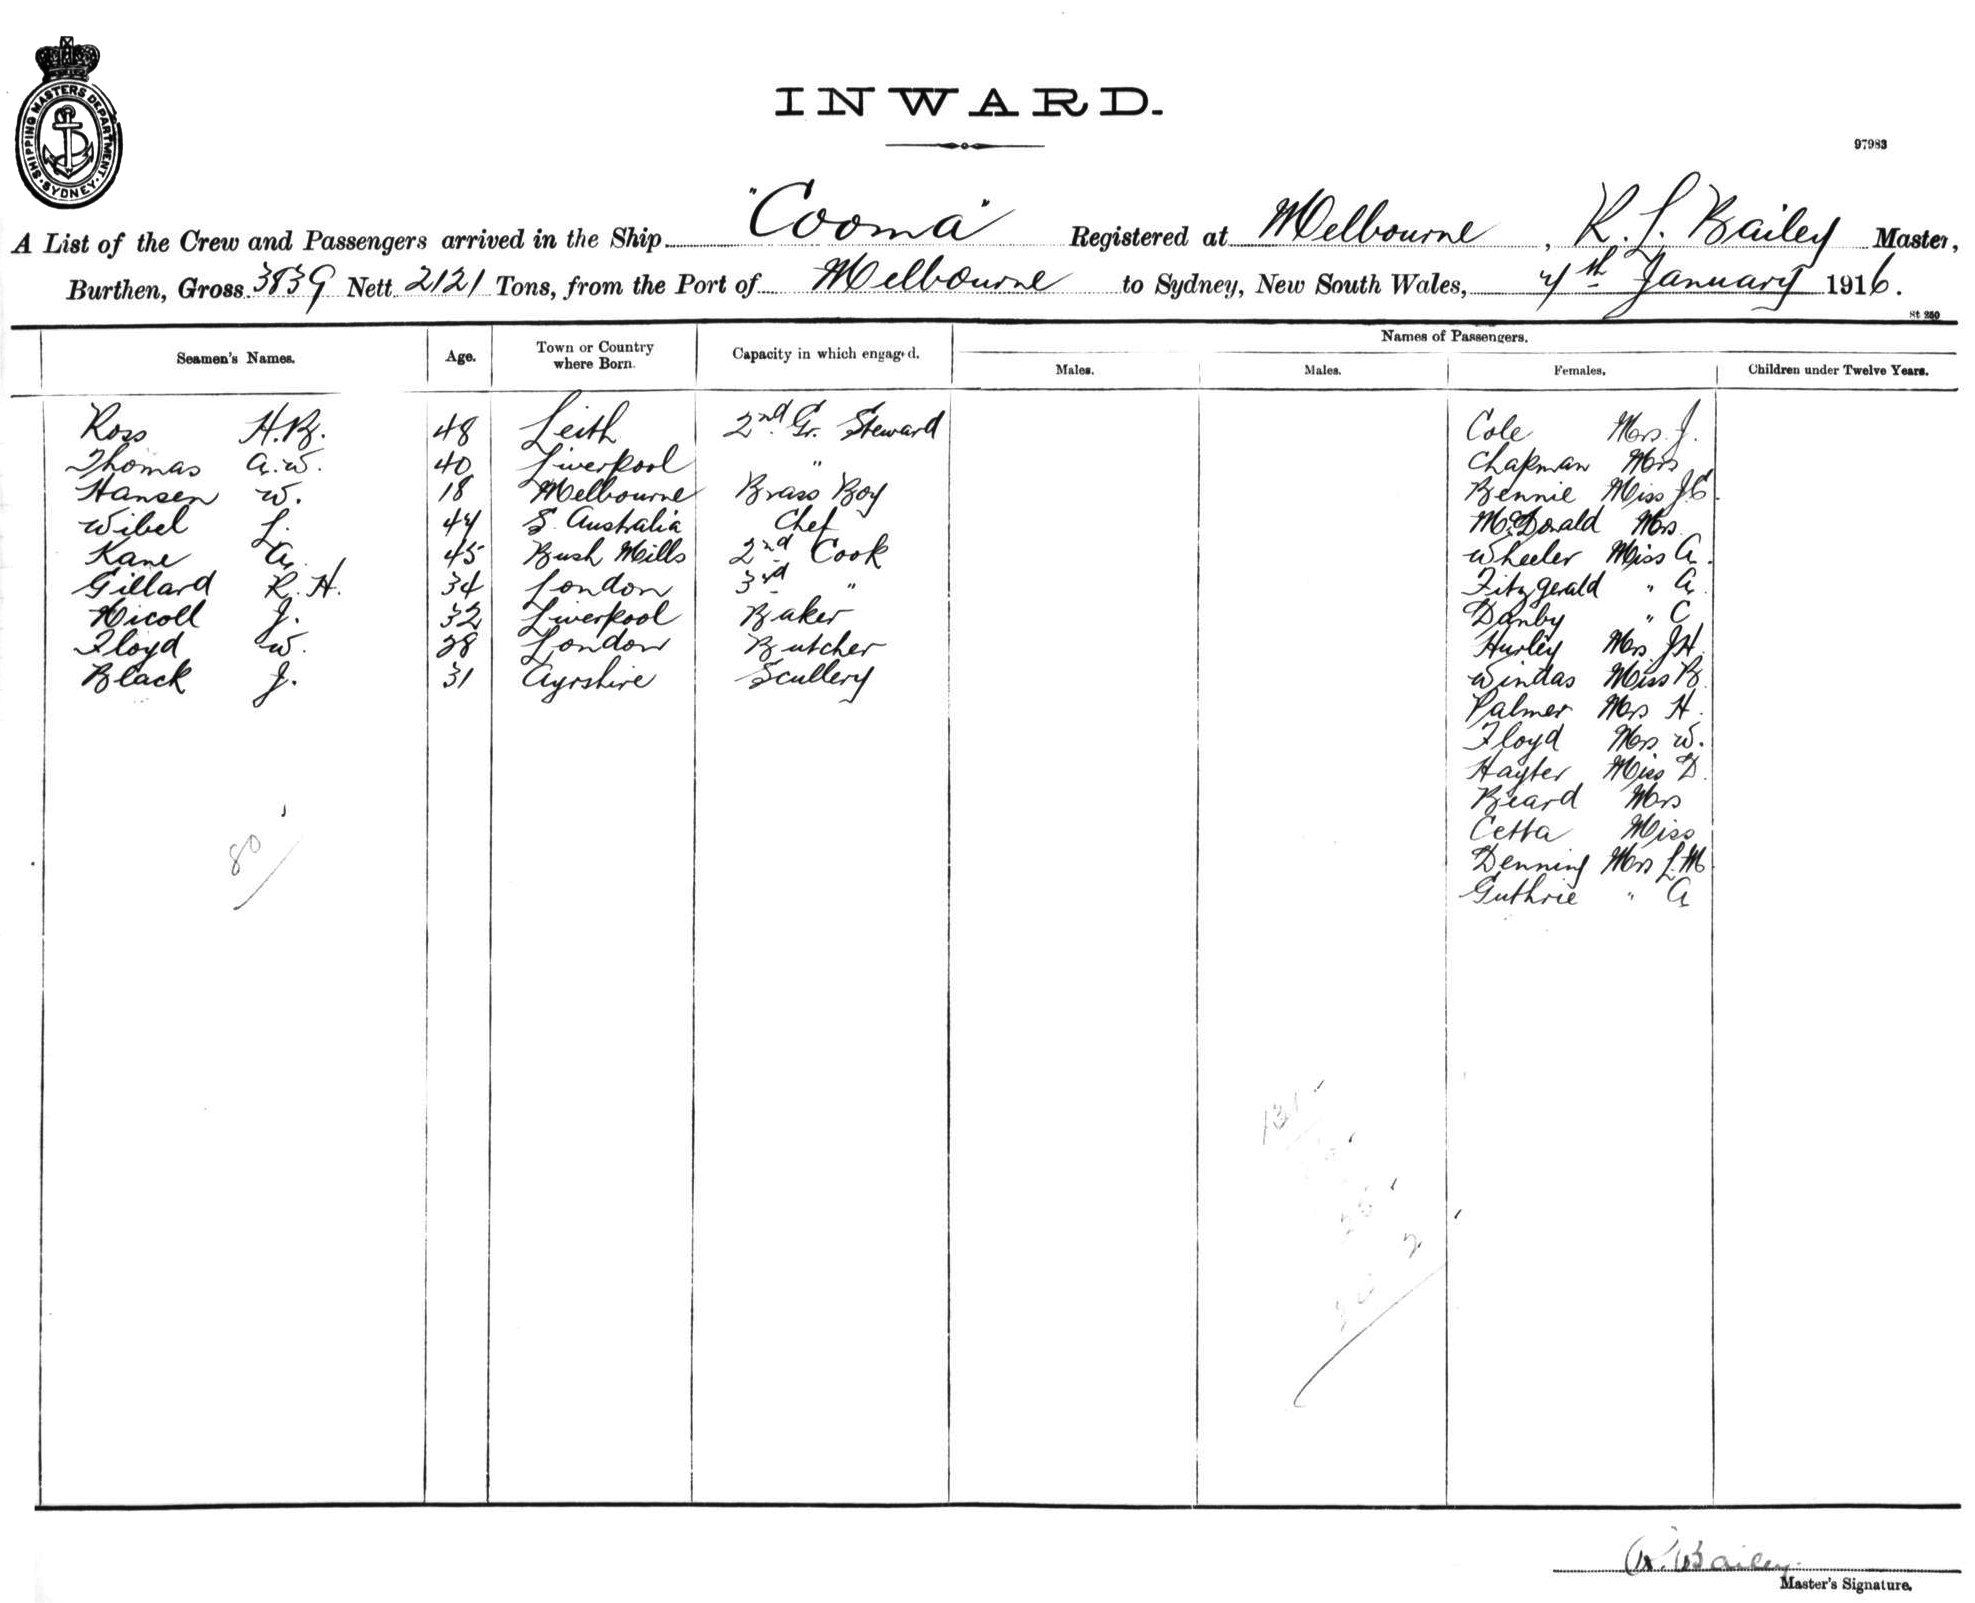 SHIPPING MASTERS DEPARTMENT · SYDNEY ·
INWARD.
97983
A List of the Crew and Passengers arrived in the Ship "Cooma" Registered at Melbourne, R. L. Bailey Master,
Burthen, Gross 3839 Nett 2121 Tons, from the Port of Melbourne to Sydney, New South Wales, 4th January 1916.
St 250
Seamen's Names. Age. Town or Country where Born. Capacity in which engaged. Names of Passengers.
Males. Males. Females. Children under Twelve Years.
Ross H.B. 48 Leith 2nd Gr. Steward Cole Mrs J.
Thomas A.W. 40 Liverpool " Chapman Mrs
Hansen W. 18 Melbourne Brass Boy Bennie Miss J.C.
Wibel L. 44 S. Australia Chef McDonald Mrs.
Kane A. 45 Bush Mills 2nd Cook Wheeler Miss A.
Gillard R.H. 34 London 3rd " Fitzgerald " A
Nicoll J. 32 Liverpool Baker Danby " C
Floyd W. 28 London Butcher Hurley Mrs J H
Black J. 31 Ayrshire Scullery Windas Miss B
Palmer Mrs H.
Floyd Mrs W.
Hayter Miss D.
Beard Mrs
Cetta Miss
Denning Mrs L.M.
Guthrie " A
80
131
R. Bailey
Master's Signature.